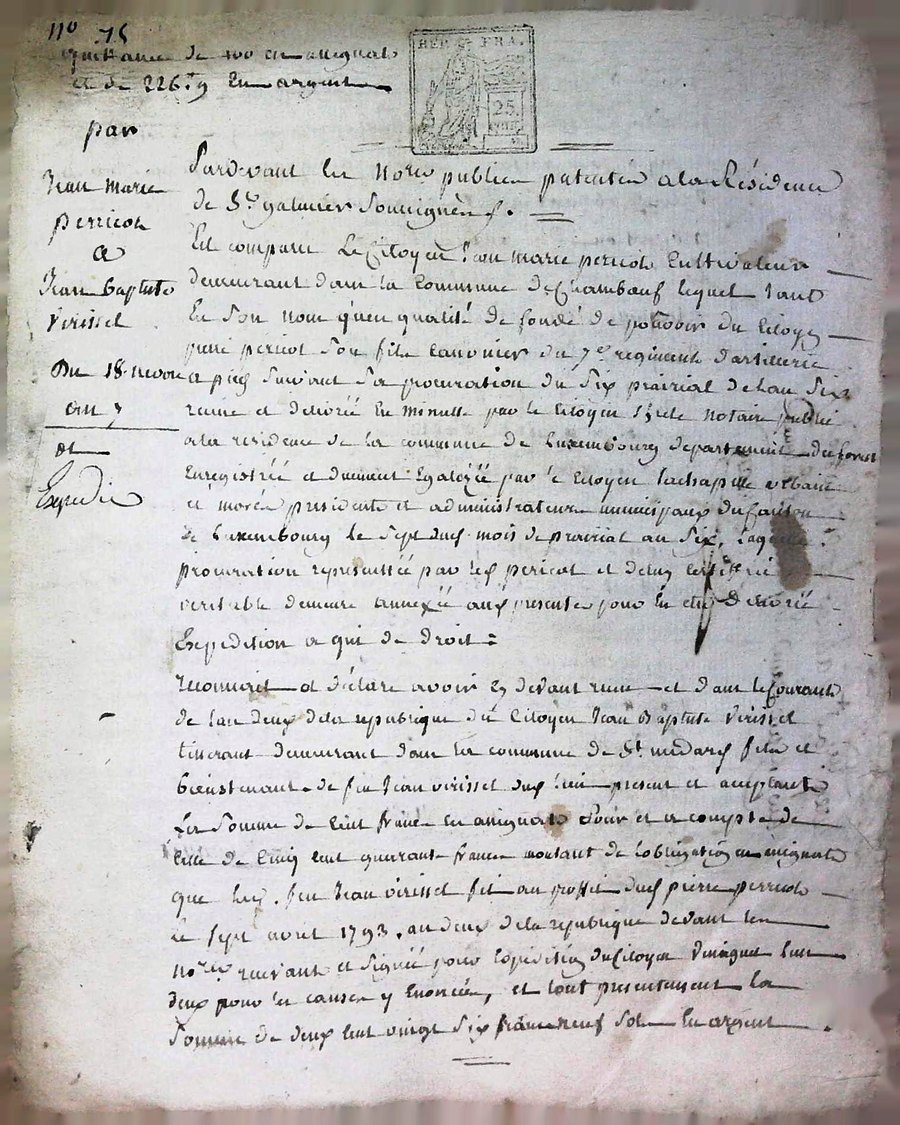 No 75
quittance de 100 en assignats
et de 226.₶ 9 En argent
par
Jean Marie
perricot
a
Jean Baptiste
Virissel
Du 18 nivose
an 7
et
Expedié
REP. FRA.
25.
Pardevant les Nores publics patentés a la Résidence
de St galmier soussignés.
Est comparu Le Citoyen Jean marie pericot Cultivateur
demeurant dans la Commune de Chambœuf lequel tant
En Son Nom qu'en qualité de fondé de pouvoir du Citoyen
pierre pericot Son fils Canonier du 7e regiment d'artillerie
a pied suivant Sa procuration du Six prairial de l'an Six
recue et delivrée En minutte par le Citoyen notaire public
a la residence de la commune de Luxembourg departement des forets
Enregistrée et duement Legalizée par le Citoyen Lachapelle
et presidents et administrateurs municipaux du Canton
de Luxembourg le Sept du mois de prairial an Six, Laquelle
procuration representée par led pericot et de luy certifiée
veritable demeure annexée aux presentes pour En etre Delivrée
Expedition a qui de droit =
Reconnoit et déclare avoir cy devant recu et dans le Courant
de l'an deux de la republique du Citoyen Jean Baptiste Virissel
demeurant dans la commune de St medard fils et
bienstenant de feu Jean virissel present et acceptant
La Somme de Cent francs En assignats Pour et a compte de
Celle de Cinq cent quarante francs montant de l'obligation en assignats
que led. feu Jean Virissel fit au proffit dud pierre perricot
Le Sept avril 1793. an deux de la republique devant les
Nores recevant et Signée pour Expedition du Citoyen l'un
deux pour les causes y Enoncées, et tout presentement la
Somme de deux Cent vingt Six francs neuf Sols En argent.